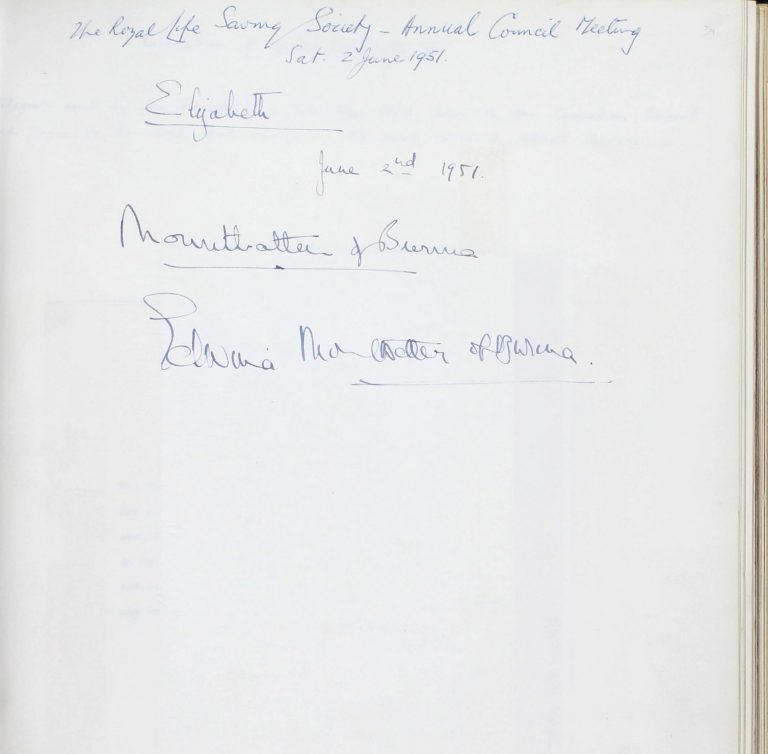 The Royal Life Saving Society - Annual Council Meeting
Sat. 2 June 1951.
Elizabeth
June 2nd 1951.
Mountbatten of Burma
Edwina Mountbatten of Burma.